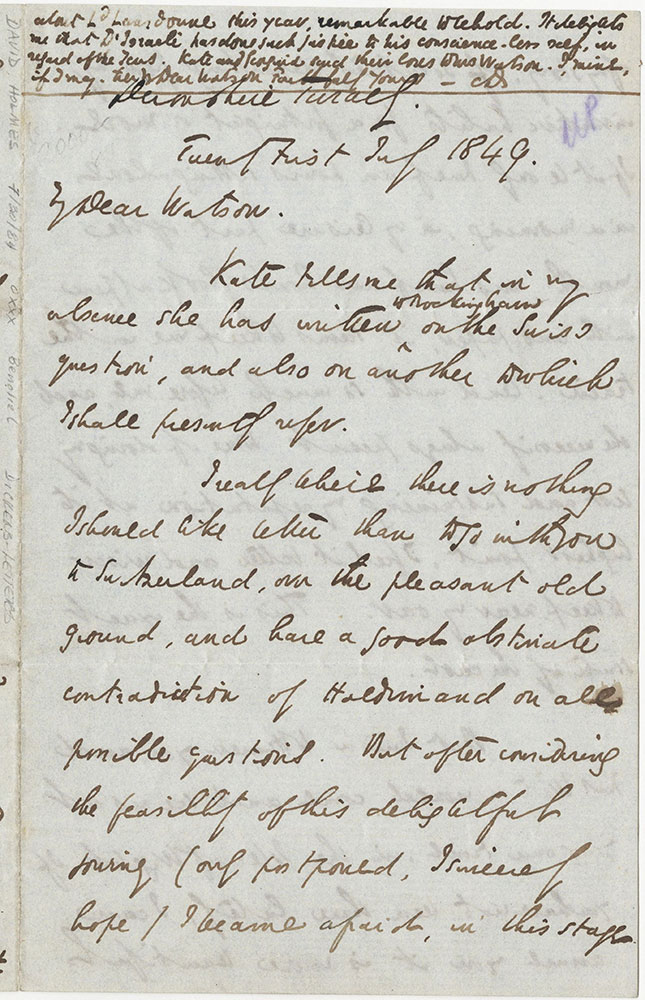 about Ld Lansdowne this year, remarkable to behold. It delights
me that D'Israeli has done such justice to his conscience-less self, in
regard of the Jews. Kate and Georgina send their loves to Mrs Watson. I, mine,
if I may. Ever Dear Watson Faithfully Yours – CD
Devonshire Terrace.
Twenty First July 1849.
My Dear Watson.
Kate tells me that in my
absence she has written to Rockingham on the Swiss
question, and also on another to which
I shall presently refer.
I really believe there is nothing
I should like better than to go with you
to Switzerland, over the pleasant old
ground, and have a good obstinate
contradiction of Haldimand on all
possible questions. But after considering
the feasibility of this delightful
(only postponed, I sincerely
hope) I became afraid, in this stage
DAVID HOLMES 7/20/64 DICKENS LETTERS